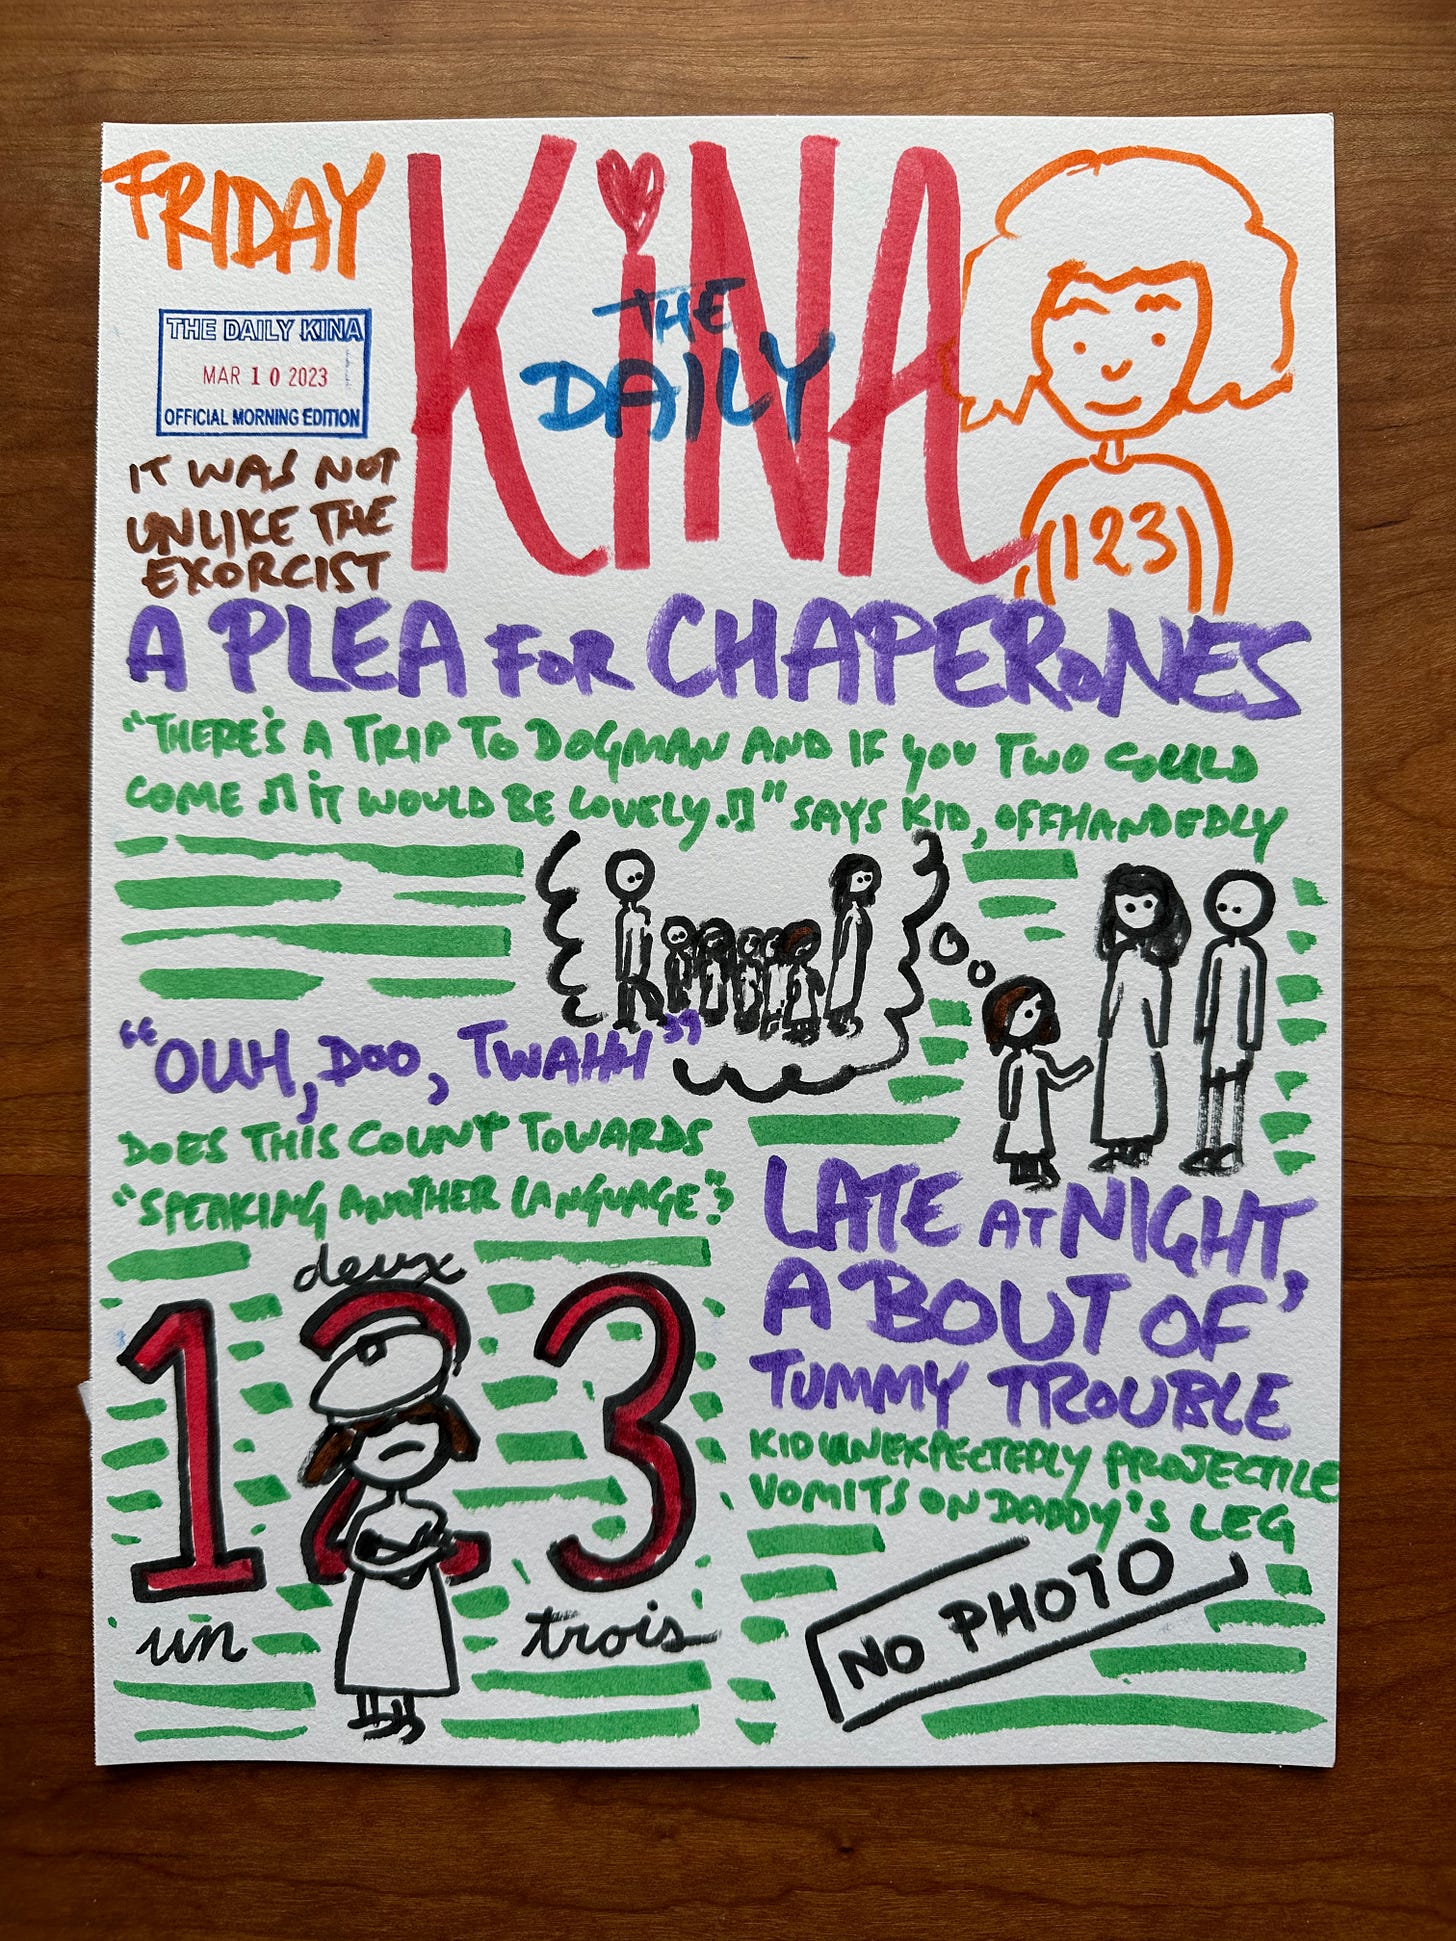 FRIDAY
THE DAILY KINA
MAR 10 2023
OFFICIAL MORNING EDITION
IT WAS NOT
UNLIKE THE
EXORCIST
KiNA
THE
DAILY
123
A PLEA FOR CHAPERONES
"THERE'S A TRIP TO DOGMAN AND IF YOU TWO COULD
COME ♫ iT WOULD BE LOVELY.♫" SAYS KID, OFFHANDEDLY
"OUH, DOO, TWAHH"
DOES THIS COUNT TOWARDS
"SPEAKING ANOTHER LANGUAGE"?
deux
1 2 3
un
trois
LATE AT NIGHT,
A BOUT OF
TUMMY TROUBLE
KID UNEXPECTEDLY PROJECTILE
VOMITS ON DADDY'S LEG
NO PHOTO